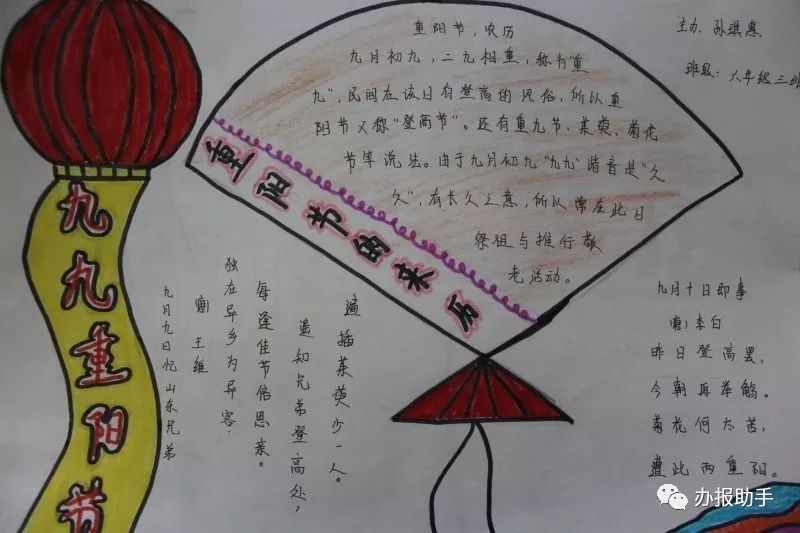 九九重阳节
重阳节的来历
重阳节,农历
九月初九,二九相重,称为重
九",民间在该日有登高的风俗,所以重
阳节又称"登高节"。还有重九节、茱萸、菊花
节等说法。由于九月初九"九九"谐音是"久
久",有长久之意,所以常在此日
祭祖与推行敬
老活动。
主办:孙琪惠
班级:六年级三班
九月九日忆山东兄弟
唐 王维
独在异乡为异客.
每逢佳节倍思亲。
遥知兄弟登高处,
遍插茱萸少一人。
九月十日即事
唐)李白
昨日登高罢,
今朝再举觞。
菊花何太苦,
遭此两重阳。
办报助手